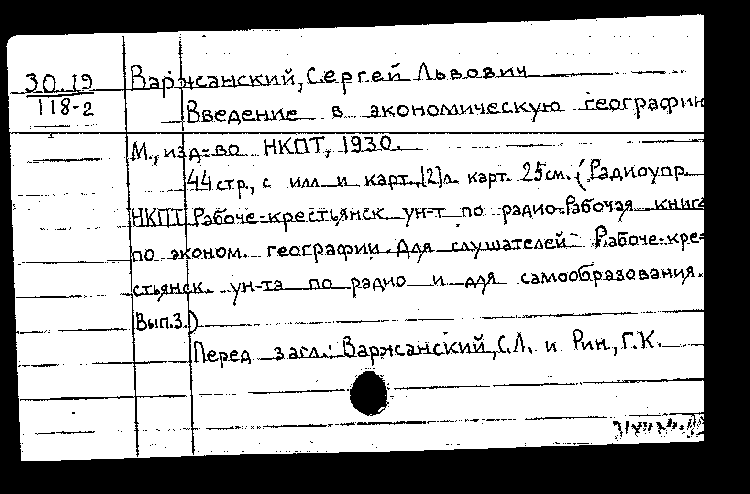 30.19
118-2
Варжанский, Сергей Львович
Введение в экономическую географию
М., изд-во НКПТ, 1930.
44 стр., с илл и карт., [2]л карт. 25см. (Радиоупр.
НКПТ. Рабоче-крестьянск ун-т по радио. Рабочая книга
по эконом. географии. Для слушателей Рабоче-кре-
стьянск. ун-та по радио и для самообразования.
Вып.3.)
Перед загл.: Варжанский, С.Л. и Рин, Г.К.